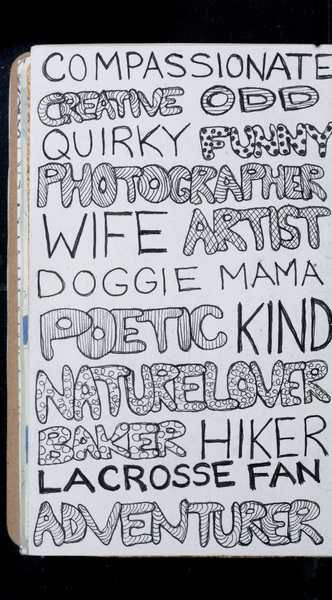 COMPASSIONATE
CREATIVE ODD
QUIRKY FUNNY
PHOTOGRAPHER
WIFE ARTIST
DOGGIE MAMA
POETIC KIND
NATURE LOVER
BAKER HIKER
LACROSSE FAN
ADVENTURER